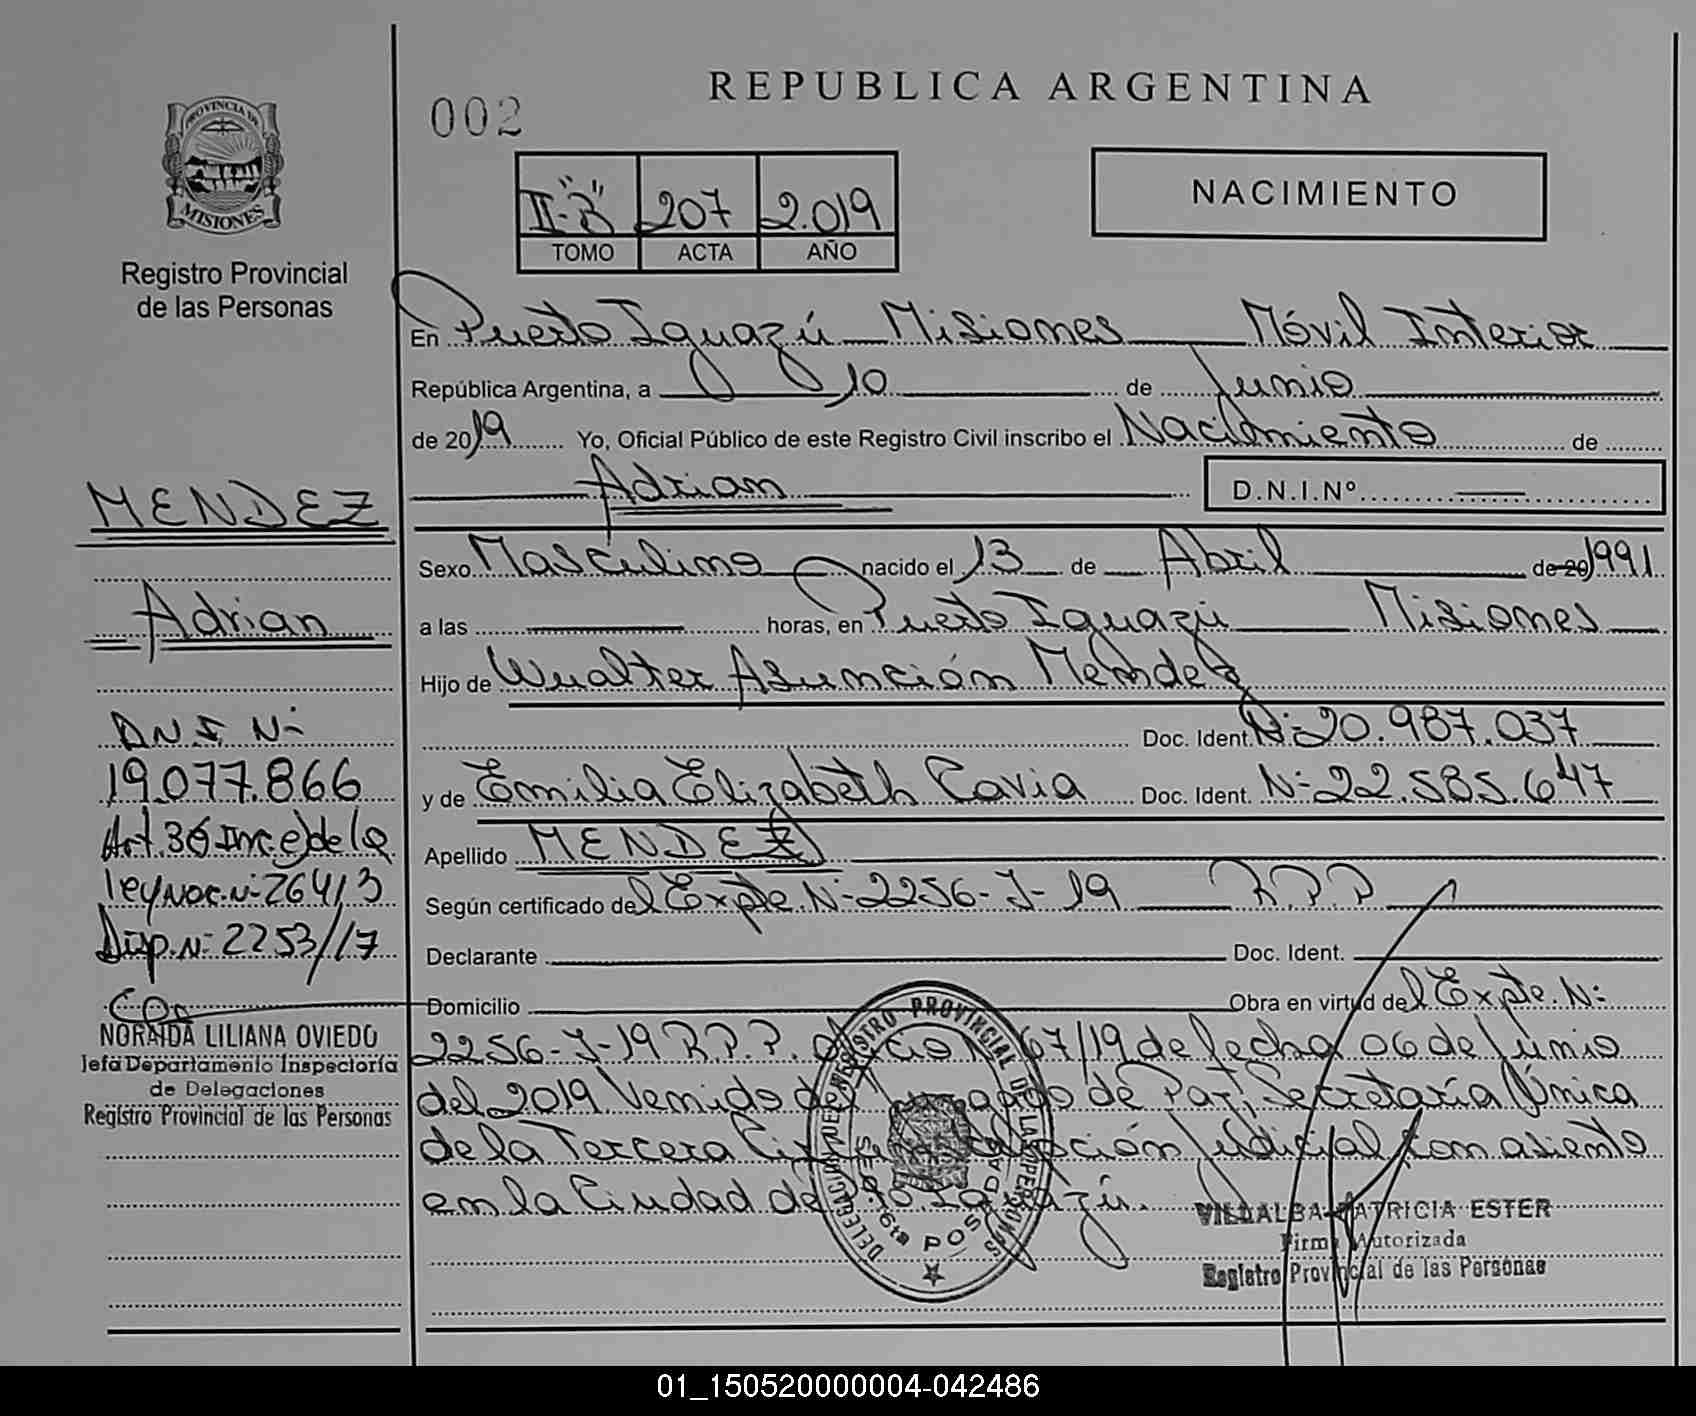 REPUBLICA ARGENTINA
002
PROVINCIA DE
MISIONES
Registro Provincial
de las Personas
II-"B" 207 2.019
TOMO ACTA AÑO
NACIMIENTO
En Puerto Iguazú Misiones Móvil Interior
República Argentina, a 10 de Junio
de 2019 Yo, Oficial Público de este Registro Civil inscribo el Nacimiento de
Adrian D.N.I.Nº
Sexo Masculino nacido el 13 de Abril de 20 1991
a las horas, en Puerto Iguazú Misiones
Hijo de Wualter Asunción Mendez
Doc. Ident. Nº 20.987.037
y de Emilia Elizabeth Cavia Doc. Ident. Nº 22.585.647
Apellido MENDEZ
Según certificado del Expte. Nº 2256-J-19 R.P.P
Declarante Doc. Ident.
Domicilio Obra en virtud del Expte. Nº
2256-J-19 R.P.P. 67/19 de fecha 06 de Junio
del 2019 Venido de Paz, Secretaría Única
de la Tercera Judicial con asiento
en la Ciudad de
MENDEZ
Adrian
D.N.I. Nº
19.077.866
Art. 36 Inc. e) de la
ley Nac. Nº 26413
Disp. Nº 2253/17
NORAIDA LILIANA OVIEDO
Jefa Departamento Inspectoría
de Delegaciones
Registro Provincial de las Personas
REGISTRO PROVINCIAL DE LAS PERSONAS
POSADAS
VILLALBA PATRICIA ESTER
Firma Autorizada
Registro Provincial de las Personas
01_150520000004-042486